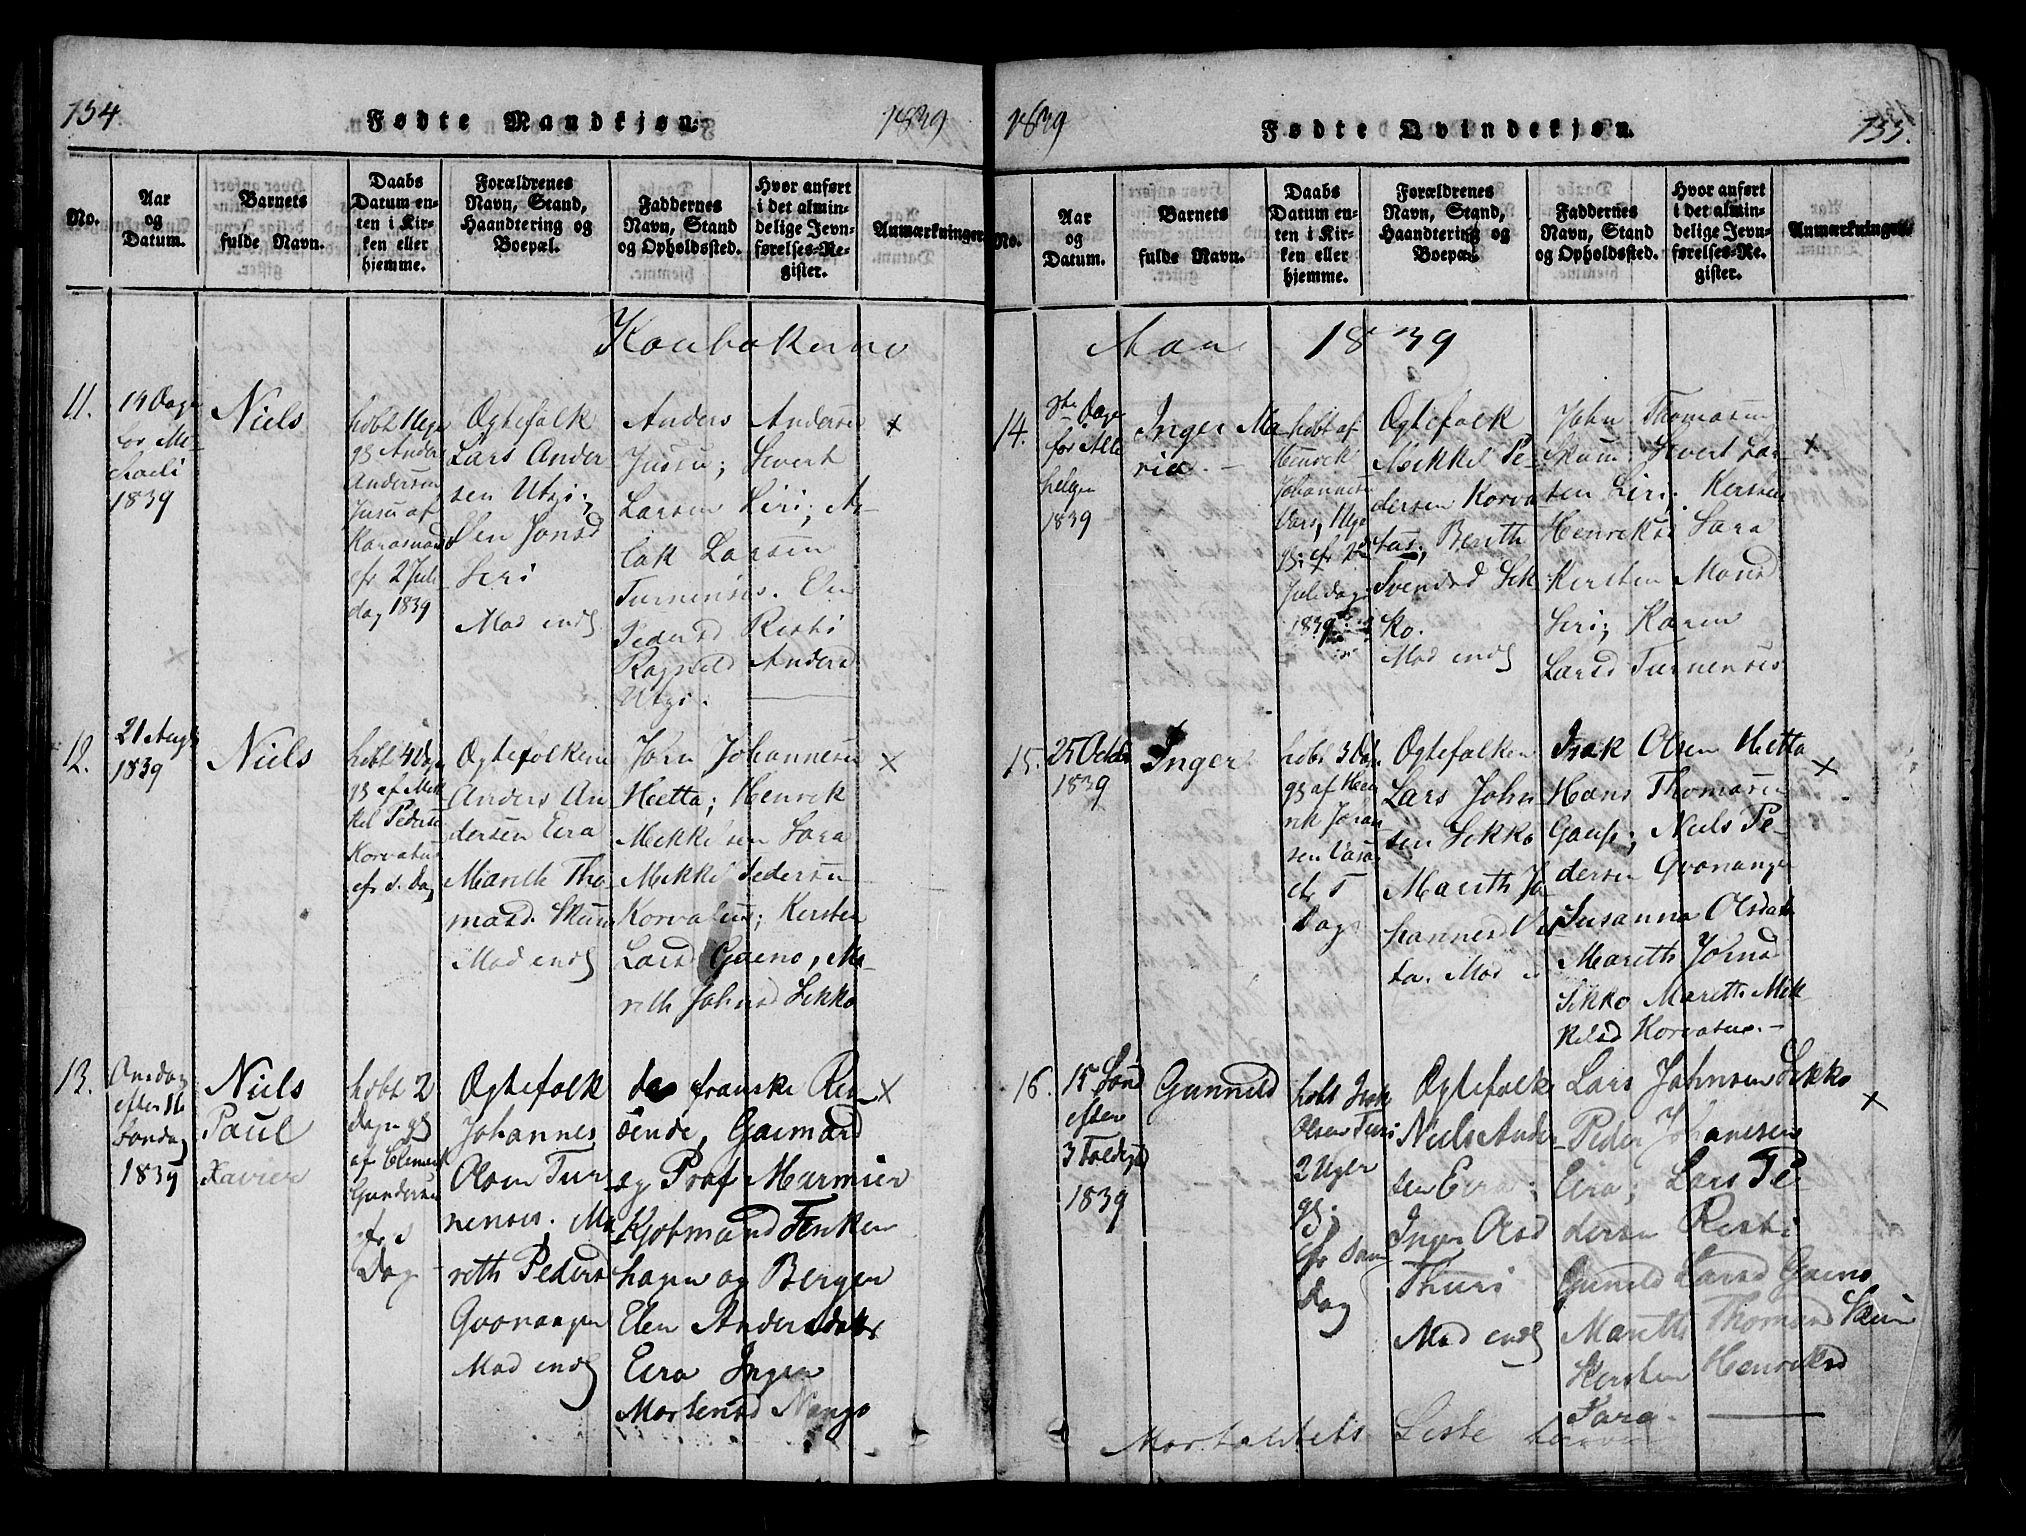 154
Fødte Mandkjøn.
1839
No.
Aar
og
Datum.
Barnets
fulde Navn.
Daabs
Datum en-
ten i Kir-
ken eller
hjemme.
Forældrenes
Navn, Stand,
Haandtering og
Boepæl.
Faddernes
Navn, Stand
og Opholdssted.
Hvor anført
i det almin-
delige Jevn-
førelses-Re-
gister.
Anmærkninger
11.
14 Dage
for Mi-
1839
Niels
hobt
af Anders
Andersen
Jusu af
Karasmand
efr 2 Jule
dag 1839
Ogtefolk
Lars Ander
sen Utzi;
Elen Jonsd
Siri
Mod endl
Anders Andersen
Jussu; Sivert
Larsen Siri; As-
lak Larsen
Turnensis. Elen
Pedersd Risti
Ragnild Andersd
Utzi.
12.
21 Augst
1839
Niels
hobt 4 Dag
gl af Mik
kel Peders
Korvatus
efr s. Dag
Ogtefolkene
Anders An
dersen Eira
Mareth Tho
masd. Skum
Mod endl
John Johannesen
Hætta; Henrik
Mikkelsen Sara
Mikkel Pedersen
Korvatus; Kersten
Larsd Gaino, Ma-
reth Johnsd Sikko
13.
Onsdag
efter 16
Søndag
1839
Niels
Paul
Xavier
hobt 2
Dage gl
af Clemet
Gundersen
efr. s
Dag
Ogtefolk
Johannes
Olsen Tur-
nensis. Ma
reth Peders
Gvonangen
Mod endl
de franske Rei-
sende, Gaimard
og Prof Marmier
Kjøbmænd Finken
hagen og Berger
Elen Andersdatter
Eira Inger
Mortensd Nango
1839
Fødte Qvindekjøn.
155.
No.
Aar
og
Datum.
Barnets
fulde Navn.
Daabs
Datum en-
ten i Kir-
ken eller
hjemme.
Forældrenes
Navn, Stand,
Haandtering og
Boepæl.
Faddernes
Navn, Stand
og Opholdssted.
Hvor anført
i det almin-
delige Jevn-
førelses-Re-
gister.
Anmærkninger
Aar 1839
14.
8te Dage
for Alle
helgen
1839
Inger Ma
ria.
hobt af
Henrik
Johannesen
Juledag
1839
Ogtefolk
Mikkel Pe-
dersen Korva
tus, Berith
Svendsd Sik
ko.
Mod endl
John Thomasen
Skum; Sivert Lar-
sen Siri; Kersten
Henriksd Sara
Kersten Monsd
Siri; Karen
Larsd Turnensis
15.
25 Octbr
1839
Inger
hobt 3 Dag
gl af Hen
rik Johan
sen Vasa
d. s
Dag
Ogtefolken
Lars John
sen Sikko
Mareth Jo
hannesd Het
ta. Mod e
Isak Olsen Hetta
Hans Thomasen
Gaup; Niels Pe-
dersen Gvonangen
Susanna Olsdatt
Mareth Johnsd
Sikko Mareth Mik
kelsd Korvatus.
16.
15 Sønd
efter
3 Foldigh
1839
Gunnild
hobt Isak
Olsen Turi
2 Uger
gl.
efr sam
dag
Ogtefolk
Niels Ander
sen Eira;
Inger Olsd
Thuri
Mod endl
Lars Johnsen Sikko
Peder Johanesen
Eira; Lars Pe
dersen Risti
Gunild Larsd Gaino
Mareth Thomasd Skum
Kersten Henriksd
Sara.
Liste